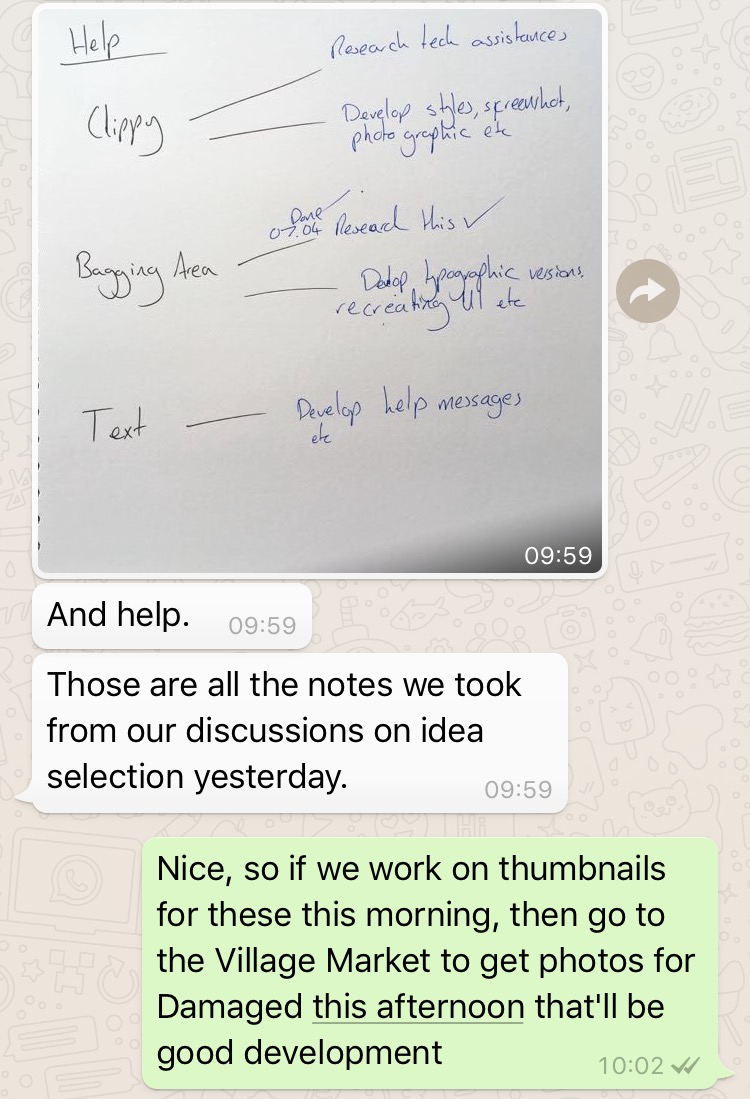 Help
Research tech assistances
Clippy
Develop styles, screenshot,
photographic etc
Done
07.04 Research this ✓
Bagging Area
Develop typographic versions,
recreating UI etc
Text
Develop help messages
etc
09:59
And help. 09:59
Those are all the notes we took
from our discussions on idea
selection yesterday. 09:59
Nice, so if we work on thumbnails
for these this morning, then go to
the Village Market to get photos for
Damaged this afternoon that'll be
good development 10:02